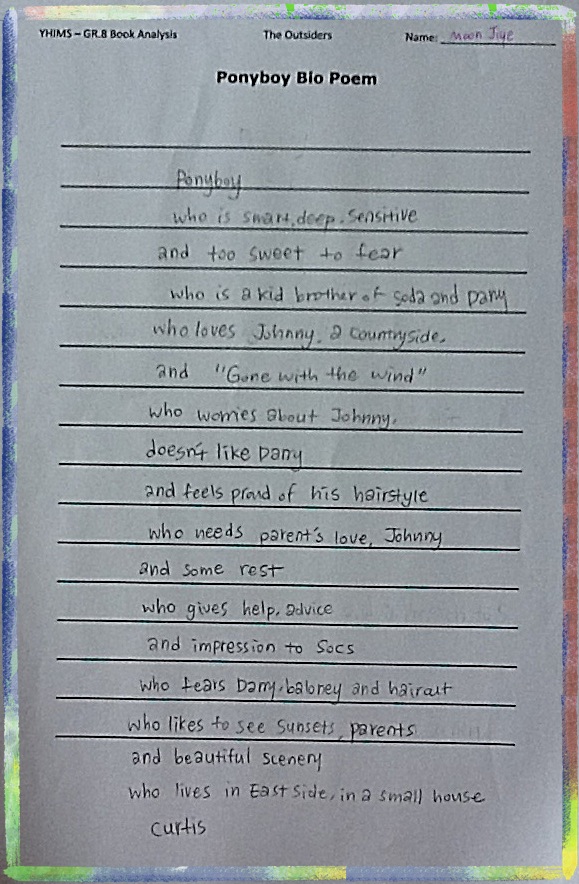 YHIMS – GR.8 Book Analysis The Outsiders Name: Moon Jiye
Ponyboy Bio Poem
Ponyboy
who is smart, deep, sensitive
and too sweet to fear
who is a kid brother of soda and Darry
who loves Johnny, a countryside,
and "Gone with the wind"
who worries about Johnny,
doesn't like Darry
and feels proud of his hairstyle
who needs parent's love, Johnny
and some rest
who gives help, advice
and impression to Socs
who fears Darry, baloney and haircut
who likes to see sunsets, parents
and beautiful scenery
who lives in East side, in a small house
Curtis